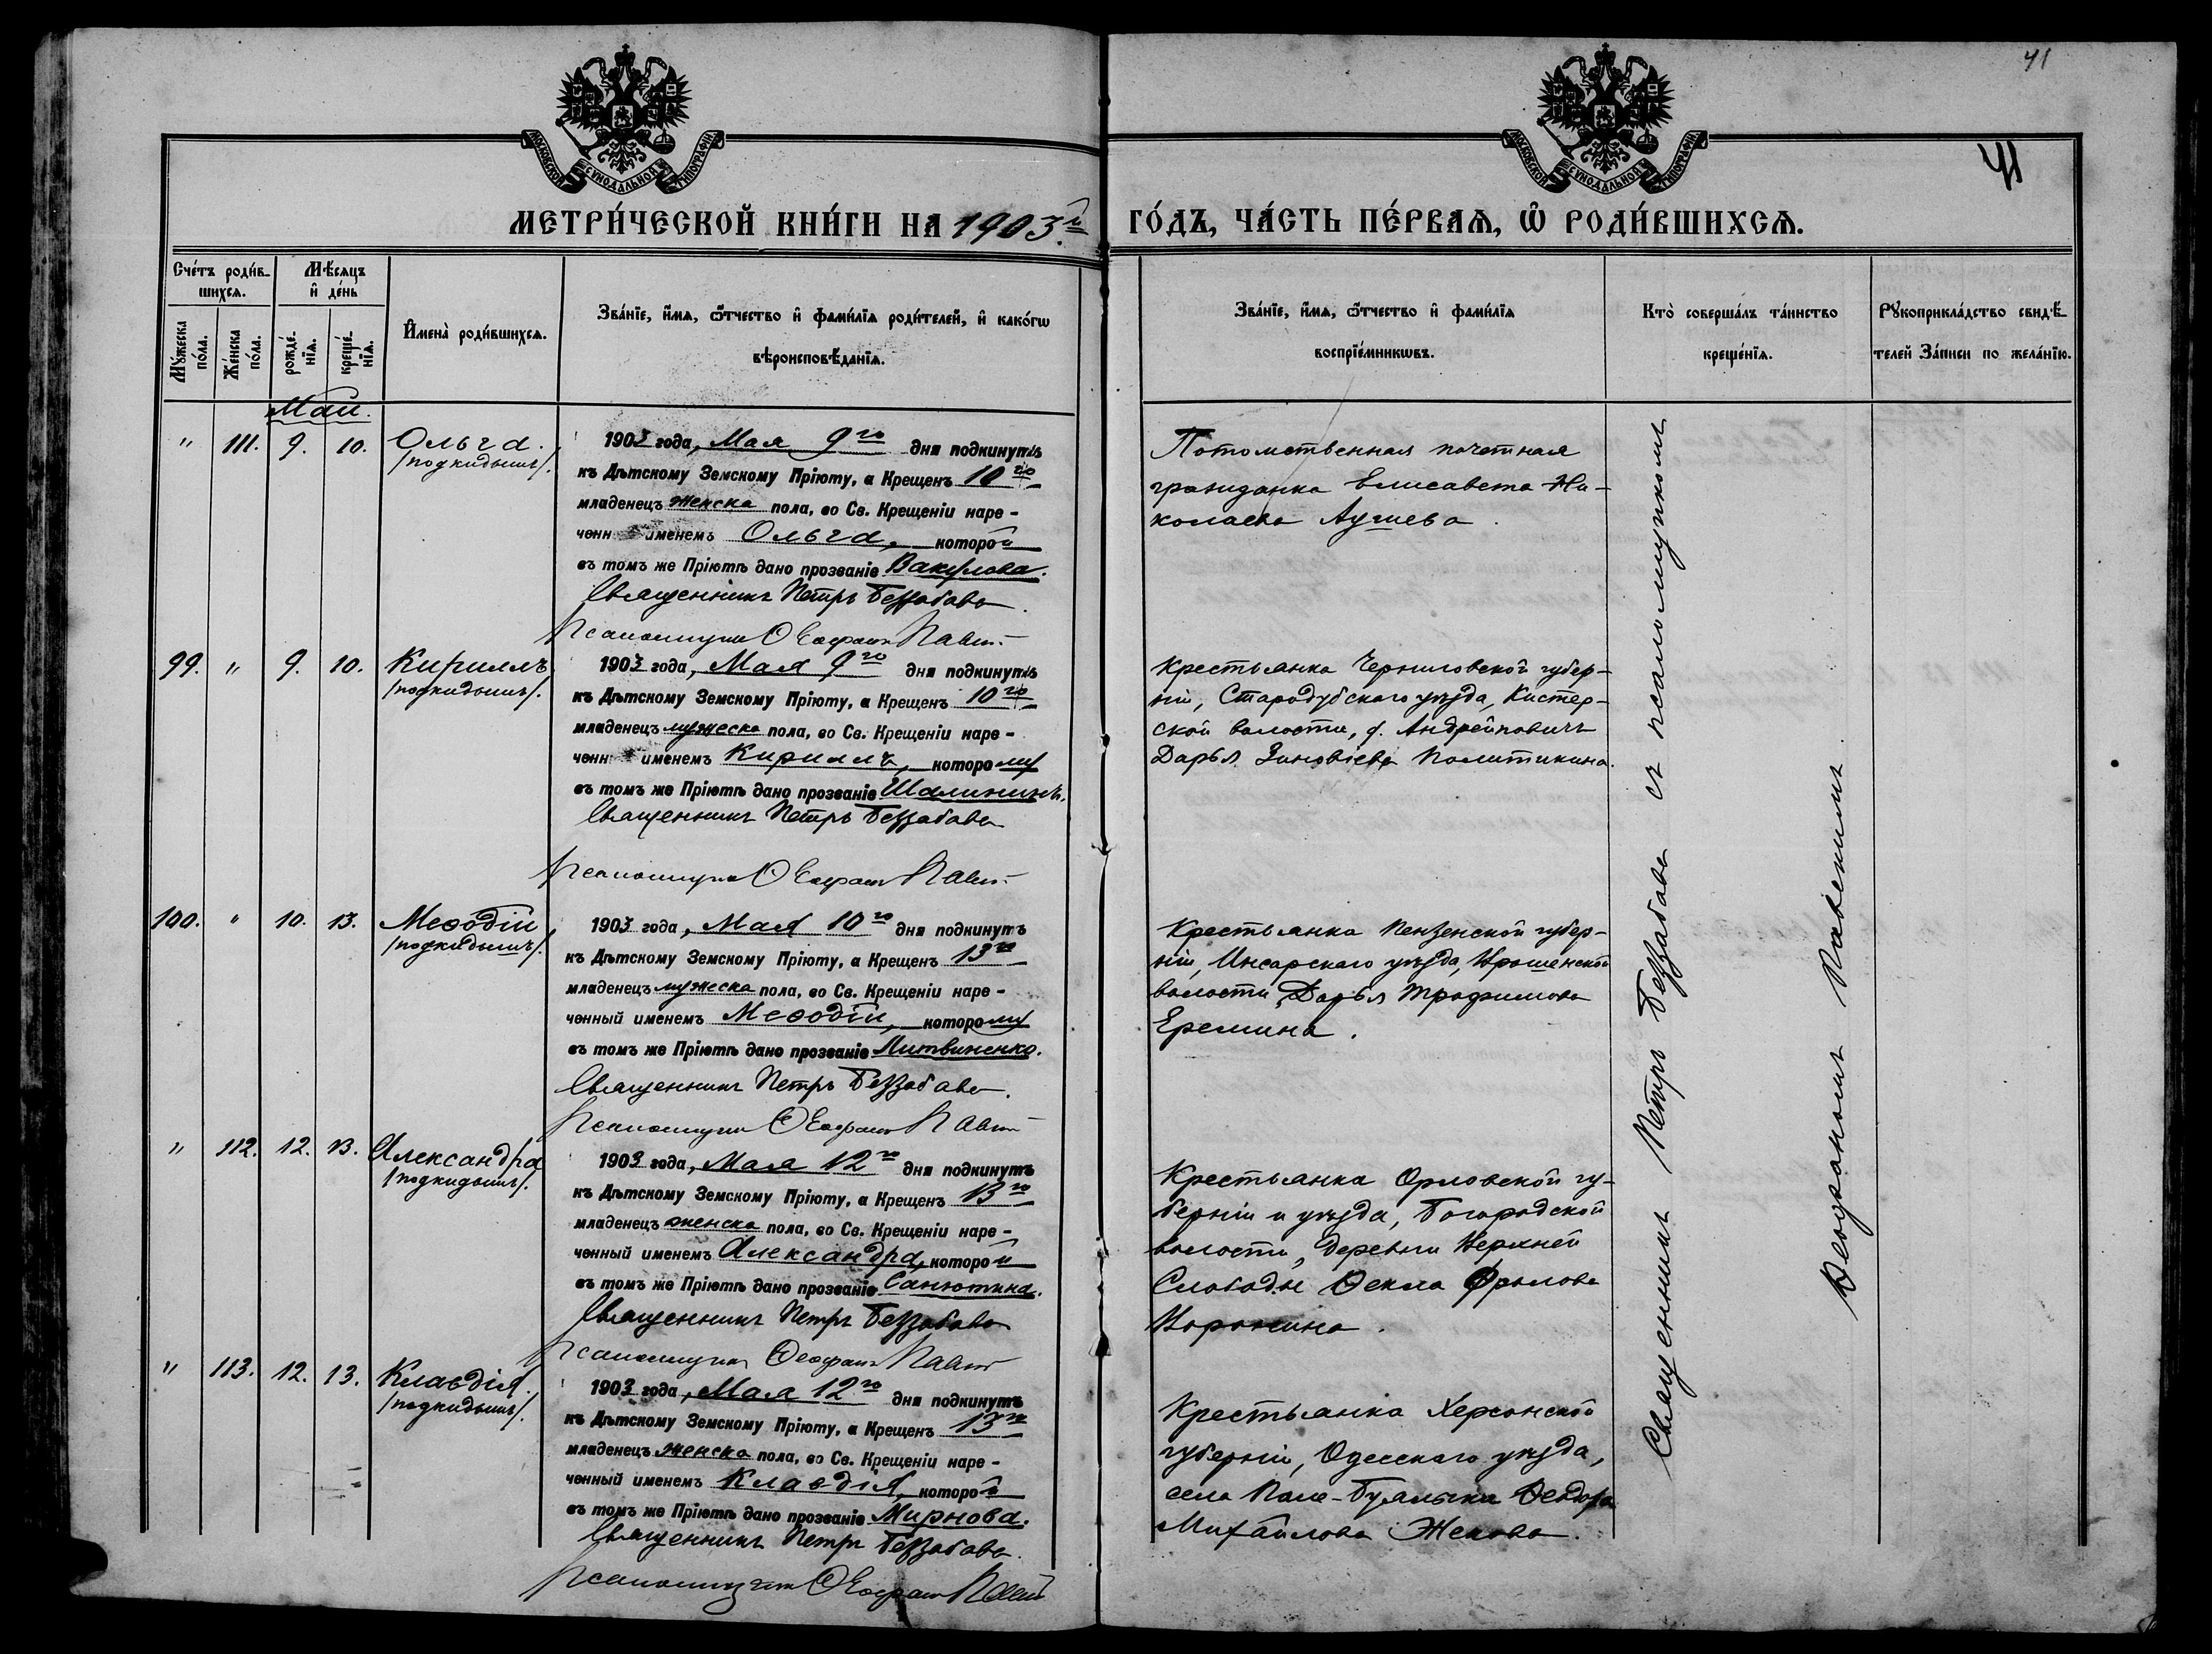 41
41
МОСКОВСКОЙ СѴНОДАЛЬНОЙ ТИПОГРАФІИ
МОСКОВСКОЙ СѴНОДАЛЬНОЙ ТИПОГРАФІИ
МЕТРИ́ЧЕСКОЙ КНИ́ГИ НА 1903й ГО́ДЪ, ЧА́СТЬ ПЕ́РВАЯ, Ѽ РОДИ́ВШИХСЯ.
Сче́тъ роди́в-
шихся.
Мѣ́сяцъ
и҆ де́нь
Мꙋ́жеска по́ла.
Же́нска по́ла.
рожде́-нїя.
креще́-нїя.
И҆мена̀ роди́вшихся.
Зва́нїе, и҆́мя, ѻ҆́тчество и҆ фами́лїя роди́телей, и҆ како́гѡ
вѣроисповѣ́данїя.
Зва́нїе, и҆́мя, ѻ҆́тчество и҆ фами́лїя
воспрїе́мникѡвъ.
Кто̀ соверша́лъ та́инство
креще́нїя.
Рꙋкоприкла́дство свидѣ́-
телей за́писи по жела́нїю.
Май.
" 111. 9. 10. Ольга.
/подкидышъ/.
1903 года, Мая 9го дня подкинутъ
къ Дѣтскому Земскому Пріюту, а Крещенъ 10го
младенецъ женска пола, во Св. Крещеніи наре-
ченн именемъ Ольга, которой
въ томъ же Пріютѣ дано прозваніе Вакулова.
Священникъ Петръ Беззабава.
Псаломщикъ Ѳеофанъ
Потомственная почетная
гражданка Елисавета Ни-
колаева
99. " 9. 10. Кириллъ
/подкидышъ/.
1903 года, Мая 9го дня подкинутъ
къ Дѣтскому Земскому Пріюту, а Крещенъ 10го
младенецъ мужеска пола, во Св. Крещеніи наре-
ченн именемъ Кириллъ, которому
въ томъ же Пріютѣ дано прозваніе Шалининъ.
Священникъ Петръ Беззабава
Псаломщикъ Ѳеофанъ
Крестьянка Черниговской губер-
ніи, Стародубскаго уѣзда, Кистер-
ской волости, д. Андрейковичъ
Дарья Зиновіева Политикина.
100. " 10. 13. Меѳодій
/подкидышъ/.
1903 года, Мая 10го дня подкинутъ
къ Дѣтскому Земскому Пріюту, а Крещенъ 13го
младенецъ мужеска пола, во Св. Крещеніи наре-
ченный именемъ Меѳодій, которому
въ томъ же Пріютѣ дано прозваніе Литвиненко.
Священникъ Петръ Беззабава.
Псаломщикъ Ѳеофанъ
Крестьянка Пензенской губер-
ніи, Инсарскаго уѣзда,
волости, Дарья Трофимова
Еремина.
" 112. 12. 13. Александра
/подкидышъ/.
1903 года, Мая 12го дня подкинутъ
къ Дѣтскому Земскому Пріюту, а Крещенъ 13го
младенецъ женска пола, во Св. Крещеніи наре-
ченный именемъ Александра, которой
въ томъ же Пріютѣ дано прозваніе Санютина.
Священникъ Петръ Беззабава
Псаломщикъ Ѳеофанъ
Крестьянка Орловской гу-
берніи и уѣзда, Богородской
волости, деревни Верхней
Слободы Ѳекла Фролова
Воронина.
" 113. 12. 13. Клавдія.
/подкидышъ/.
1903 года, Мая 12го дня подкинутъ
къ Дѣтскому Земскому Пріюту, а Крещенъ 13го
младенецъ женска пола, во Св. Крещеніи наре-
ченный именемъ Клавдія, которой
въ томъ же Пріютѣ дано прозваніе Мирнова.
Священникъ Петръ Беззабава.
Псаломщикъ Ѳеофанъ
Крестьянка Херсонской
губерніи, Одесскаго уѣзда,
села Ѳеодора
Михайлова Жекова.
Священникъ Петръ Беззабава съ псаломщикомъ
Ѳеофаномъ Павскимъ